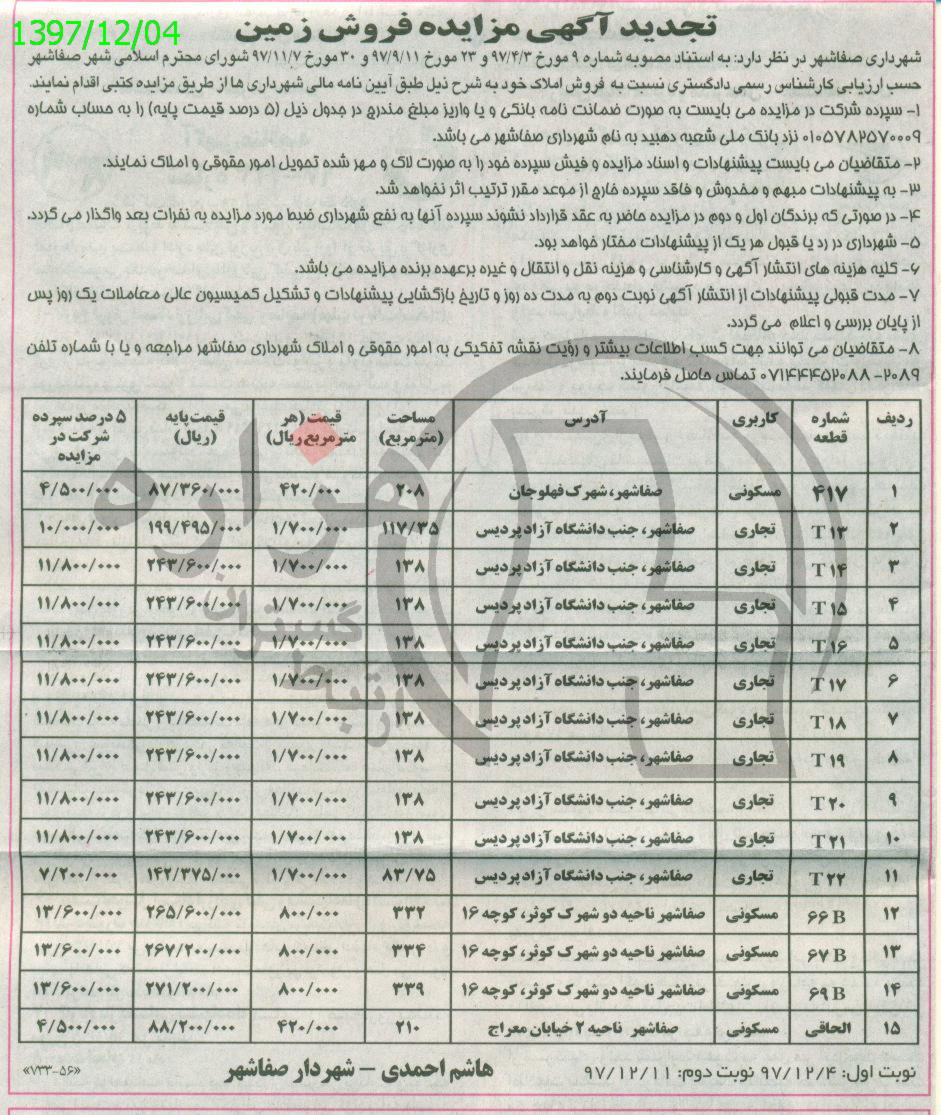 1397/12/04
تجدید آگهی مزایده فروش زمین
شهرداری صفاشهر در نظر دارد: به استناد مصوبه شماره ۹ مورخ ۹۷/۴/۳ و ۲۳ مورخ ۹۷/۹/۱۱ و ۳۰ مورخ ۹۷/۱۱/۷ شورای محترم اسلامی شهر صفاشهر
حسب ارزیابی کارشناس رسمی دادگستری نسبت به فروش املاک خود به شرح ذیل طبق آیین نامه مالی شهرداری ها از طریق مزایده کتبی اقدام نمایند.
۱- سپرده شرکت در مزایده می بایست به صورت ضمانت نامه بانکی و یا واریز مبلغ مندرج در جدول ذیل (۵ درصد قیمت پایه) را به حساب شماره
۰۱۰۵۷۸۲۵۷۰۰۰۹ نزد بانک ملی شعبه دهبید به نام شهرداری صفاشهر می باشد.
۲- متقاضیان می بایست پیشنهادات و اسناد مزایده و فیش سپرده خود را به صورت لاک و مهر شده تحویل امور حقوقی و املاک نمایند.
۳- به پیشنهادات مبهم و مخدوش و فاقد سپرده خارج از موعد مقرر ترتیب اثر نخواهد شد.
۴- در صورتی که برندگان اول و دوم در مزایده حاضر به عقد قرارداد نشوند سپرده آنها به نفع شهرداری ضبط مورد مزایده به نفرات بعد واگذار می گردد.
۵- شهرداری در رد یا قبول هر یک از پیشنهادات مختار خواهد بود.
۶- کلیه هزینه های انتشار آگهی و کارشناسی و هزینه نقل و انتقال و غیره برعهده برنده مزایده می باشد.
۷- مدت قبولی پیشنهادات از انتشار آگهی نوبت دوم به مدت ده روز و تاریخ بازگشایی پیشنهادات و تشکیل کمیسیون عالی معاملات یک روز پس
از پایان بررسی و اعلام می گردد.
۸- متقاضیان می توانند جهت کسب اطلاعات بیشتر و رؤیت نقشه تفکیکی به امور حقوقی و املاک شهرداری صفاشهر مراجعه و یا با شماره تلفن
۲۰۸۹-۰۷۱۴۴۴۵۲۰۸۸ تماس حاصل فرمایند.
ردیف شماره قطعه کاربری آدرس مساحت (مترمربع) قیمت (هر مترمربع ریال) قیمت پایه (ریال) ۵ درصد سپرده شرکت در مزایده
۱ ۴۱۷ مسکونی صفاشهر، شهرک فهلوجان ۲۰۸ ۴۲۰/۰۰۰ ۸۷/۳۶۰/۰۰۰ ۴/۵۰۰/۰۰۰
۲ T ۱۳ تجاری صفاشهر، جنب دانشگاه آزاد پردیس ۱۱۷/۳۵ ۱/۷۰۰/۰۰۰ ۱۹۹/۴۹۵/۰۰۰ ۱۰/۰۰۰/۰۰۰
۳ T ۱۴ تجاری صفاشهر، جنب دانشگاه آزاد پردیس ۱۳۸ ۱/۷۰۰/۰۰۰ ۲۴۳/۶۰۰/۰۰۰ ۱۱/۸۰۰/۰۰۰
۴ T ۱۵ تجاری صفاشهر، جنب دانشگاه آزاد پردیس ۱۳۸ ۱/۷۰۰/۰۰۰ ۲۴۳/۶۰۰/۰۰۰ ۱۱/۸۰۰/۰۰۰
۵ T ۱۶ تجاری صفاشهر، جنب دانشگاه آزاد پردیس ۱۳۸ ۱/۷۰۰/۰۰۰ ۲۴۳/۶۰۰/۰۰۰ ۱۱/۸۰۰/۰۰۰
۶ T ۱۷ تجاری صفاشهر، جنب دانشگاه آزاد پردیس ۱۳۸ ۱/۷۰۰/۰۰۰ ۲۴۳/۶۰۰/۰۰۰ ۱۱/۸۰۰/۰۰۰
۷ T ۱۸ تجاری صفاشهر، جنب دانشگاه آزاد پردیس ۱۳۸ ۱/۷۰۰/۰۰۰ ۲۴۳/۶۰۰/۰۰۰ ۱۱/۸۰۰/۰۰۰
۸ T ۱۹ تجاری صفاشهر، جنب دانشگاه آزاد پردیس ۱۳۸ ۱/۷۰۰/۰۰۰ ۲۴۳/۶۰۰/۰۰۰ ۱۱/۸۰۰/۰۰۰
۹ T ۲۰ تجاری صفاشهر، جنب دانشگاه آزاد پردیس ۱۳۸ ۱/۷۰۰/۰۰۰ ۲۴۳/۶۰۰/۰۰۰ ۱۱/۸۰۰/۰۰۰
۱۰ T ۲۱ تجاری صفاشهر، جنب دانشگاه آزاد پردیس ۱۳۸ ۱/۷۰۰/۰۰۰ ۲۴۳/۶۰۰/۰۰۰ ۱۱/۸۰۰/۰۰۰
۱۱ T ۲۲ تجاری صفاشهر، جنب دانشگاه آزاد پردیس ۸۳/۷۵ ۱/۷۰۰/۰۰۰ ۱۴۲/۳۷۵/۰۰۰ ۷/۲۰۰/۰۰۰
۱۲ ۶۶ B مسکونی صفاشهر ناحیه دو شهرک کوثر، کوچه ۱۶ ۳۳۲ ۸۰۰/۰۰۰ ۲۶۵/۶۰۰/۰۰۰ ۱۳/۶۰۰/۰۰۰
۱۳ ۶۷ B مسکونی صفاشهر ناحیه دو شهرک کوثر، کوچه ۱۶ ۳۳۴ ۸۰۰/۰۰۰ ۲۶۷/۲۰۰/۰۰۰ ۱۳/۶۰۰/۰۰۰
۱۴ ۶۹ B مسکونی صفاشهر ناحیه دو شهرک کوثر، کوچه ۱۶ ۳۳۹ ۸۰۰/۰۰۰ ۲۷۱/۲۰۰/۰۰۰ ۱۳/۶۰۰/۰۰۰
۱۵ الحاقی مسکونی صفاشهر ناحیه ۲ خیابان معراج ۲۱۰ ۴۲۰/۰۰۰ ۸۸/۲۰۰/۰۰۰ ۴/۵۰۰/۰۰۰
نوبت اول: ۹۷/۱۲/۴ نوبت دوم: ۹۷/۱۲/۱۱ هاشم احمدی – شهردار صفاشهر «۷۳۳-۵۶»
هزاره
ارتباط گستران